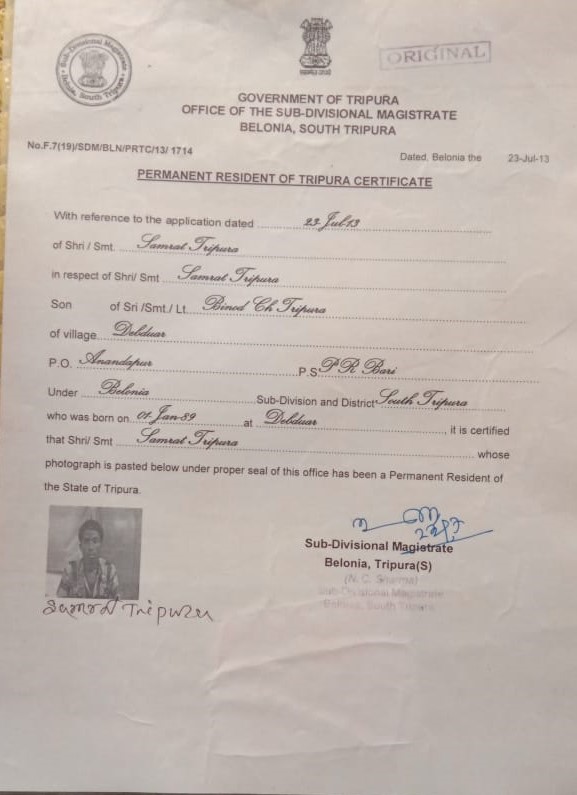 Sub-Divisional Magistrate
Belonia, South Tripura
ORIGINAL
GOVERNMENT OF TRIPURA
OFFICE OF THE SUB-DIVISIONAL MAGISTRATE
BELONIA, SOUTH TRIPURA
No.F.7(19)/SDM/BLN/PRTC/13/ 1714
Dated, Belonia the 23-Jul-13
PERMANENT RESIDENT OF TRIPURA CERTIFICATE
With reference to the application dated 23-Jul-13
of Shri / Smt. Samrat Tripura
in respect of Shri/ Smt Samrat Tripura
Son of Sri /Smt./ Lt. Binod Ch Tripura
of village Debduar
P.O. Anandapur P.S P R Bari
Under Belonia Sub-Division and District South Tripura
who was born on 01-Jan-89 at Debduar, it is certified
that Shri/ Smt Samrat Tripura whose
photograph is pasted below under proper seal of this office has been a Permanent Resident of
the State of Tripura.
Sub-Divisional Magistrate
Belonia, Tripura(S)
(N. C. Sharma)
Sub-Divisional Magistrate
Belonia, South Tripura
Tripura